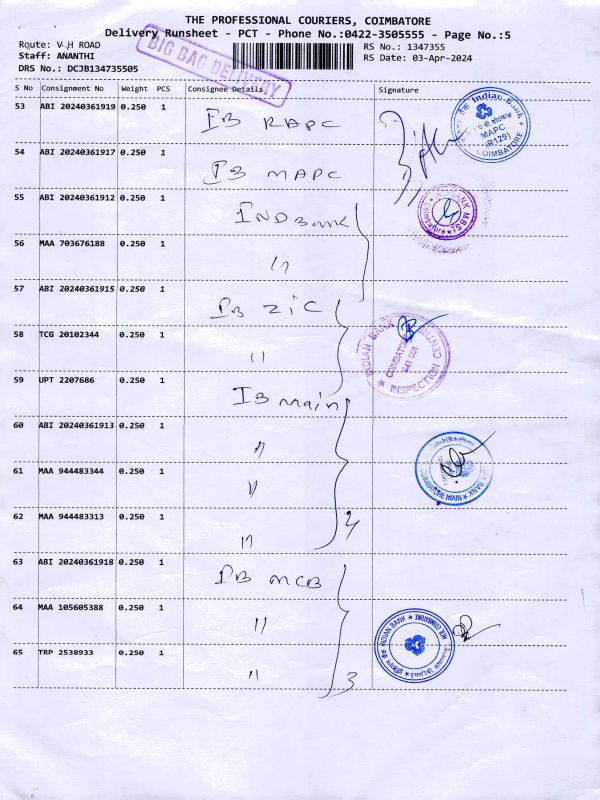 THE PROFESSIONAL COURIERS, COIMBATORE
Delivery Runsheet - PCT - Phone No.:0422-3505555 - Page No.:5
Route: V H ROAD
RS No.: 1347355
Staff: ANANTHI
RS Date: 03-Apr-2024
DRS No.: DCJB134735505
BIG BAG DELIVERY
S No Consignment No Weight PCS Consignee Details Signature
53 ABI 20240361919 0.250 1 IB RAPC
Indian Bank MAPC (R129) COIMBATORE
54 ABI 20240361917 0.250 1 IB MAPC
55 ABI 20240361912 0.250 1 INDBank
56 MAA 703676188 0.250 1 〃
57 ABI 20240361915 0.250 1 IB ZIC
58 TCG 20102344 0.250 1 〃
INDIAN BANK INSPECTION CENTRE COIMBATORE 641 001
59 UPT 2207686 0.250 1 IB Main
60 ABI 20240361913 0.250 1 〃
61 MAA 944483344 0.250 1 〃
COIMBATORE MAIN
62 MAA 944483313 0.250 1 〃 4
63 ABI 20240361918 0.250 1 IB MCB
64 MAA 105605388 0.250 1 〃
INDIAN BANK
65 TRP 2538933 0.250 1 〃 3